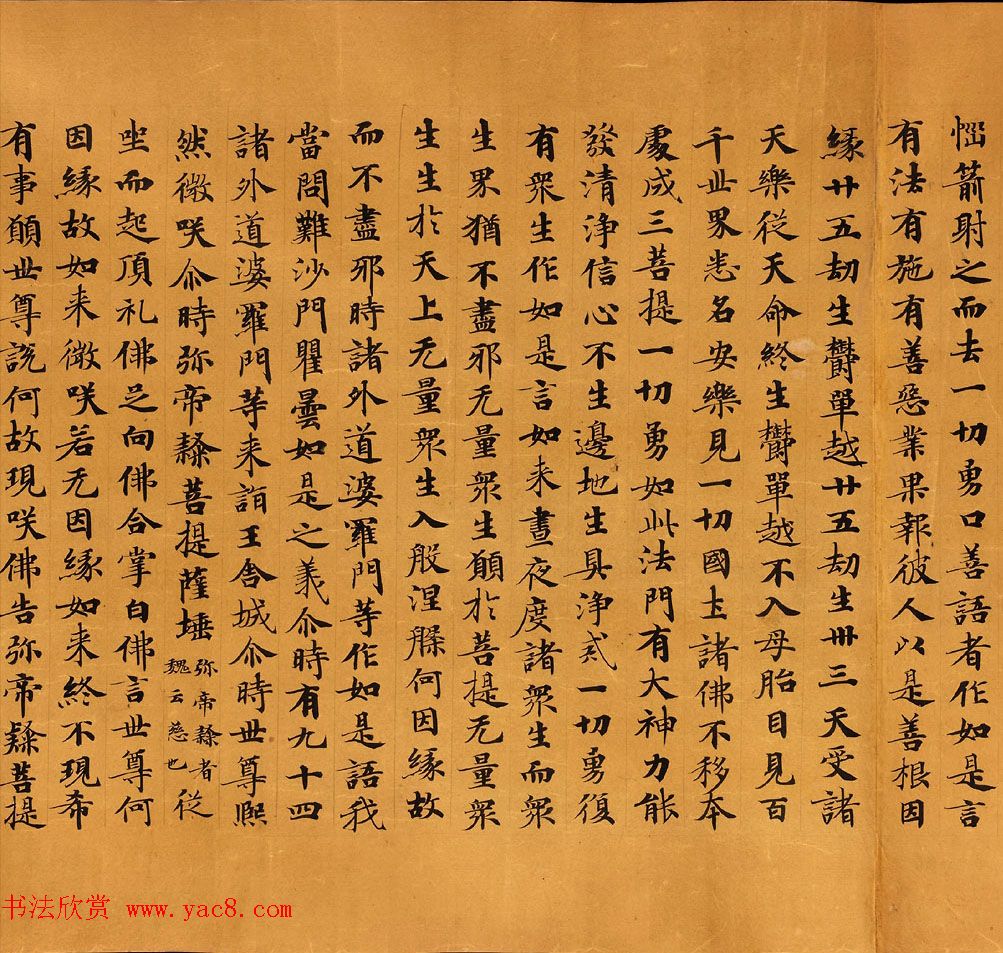 惱箭射之而去一切勇口善語者作如是言
有法有施有善惡業果報彼人以是善根因
緣廿五劫生欝單越廿五劫生卅三天受諸
天樂從天命終生欝單越不入母胎目見百
千世界悉名安樂見一切國土諸佛不移本
處成三菩提一切勇如此法門有大神力能
發清淨信心不生邊地生具淨戒一切勇復
有衆生作如是言如来晝夜度諸衆生而衆
生界猶不盡邪无量衆生願於菩提无量衆
生生於天上无量衆生入般涅槃何因緣故
而不盡邪時諸外道婆羅門等作如是語我
當問難沙門瞿曇如是之義尒時有九十四
諸外道婆羅門等来詣王舍城尒時世尊熙
然微咲尒時弥帝隸菩提薩埵弥帝隸者魏云慈也從
坐而起頂礼佛足向佛合掌白佛言世尊何
因緣故如来微咲若无因緣如来終不現希
有事願世尊說何故現咲佛告弥帝隸菩提
书法欣赏 www.yac8.com